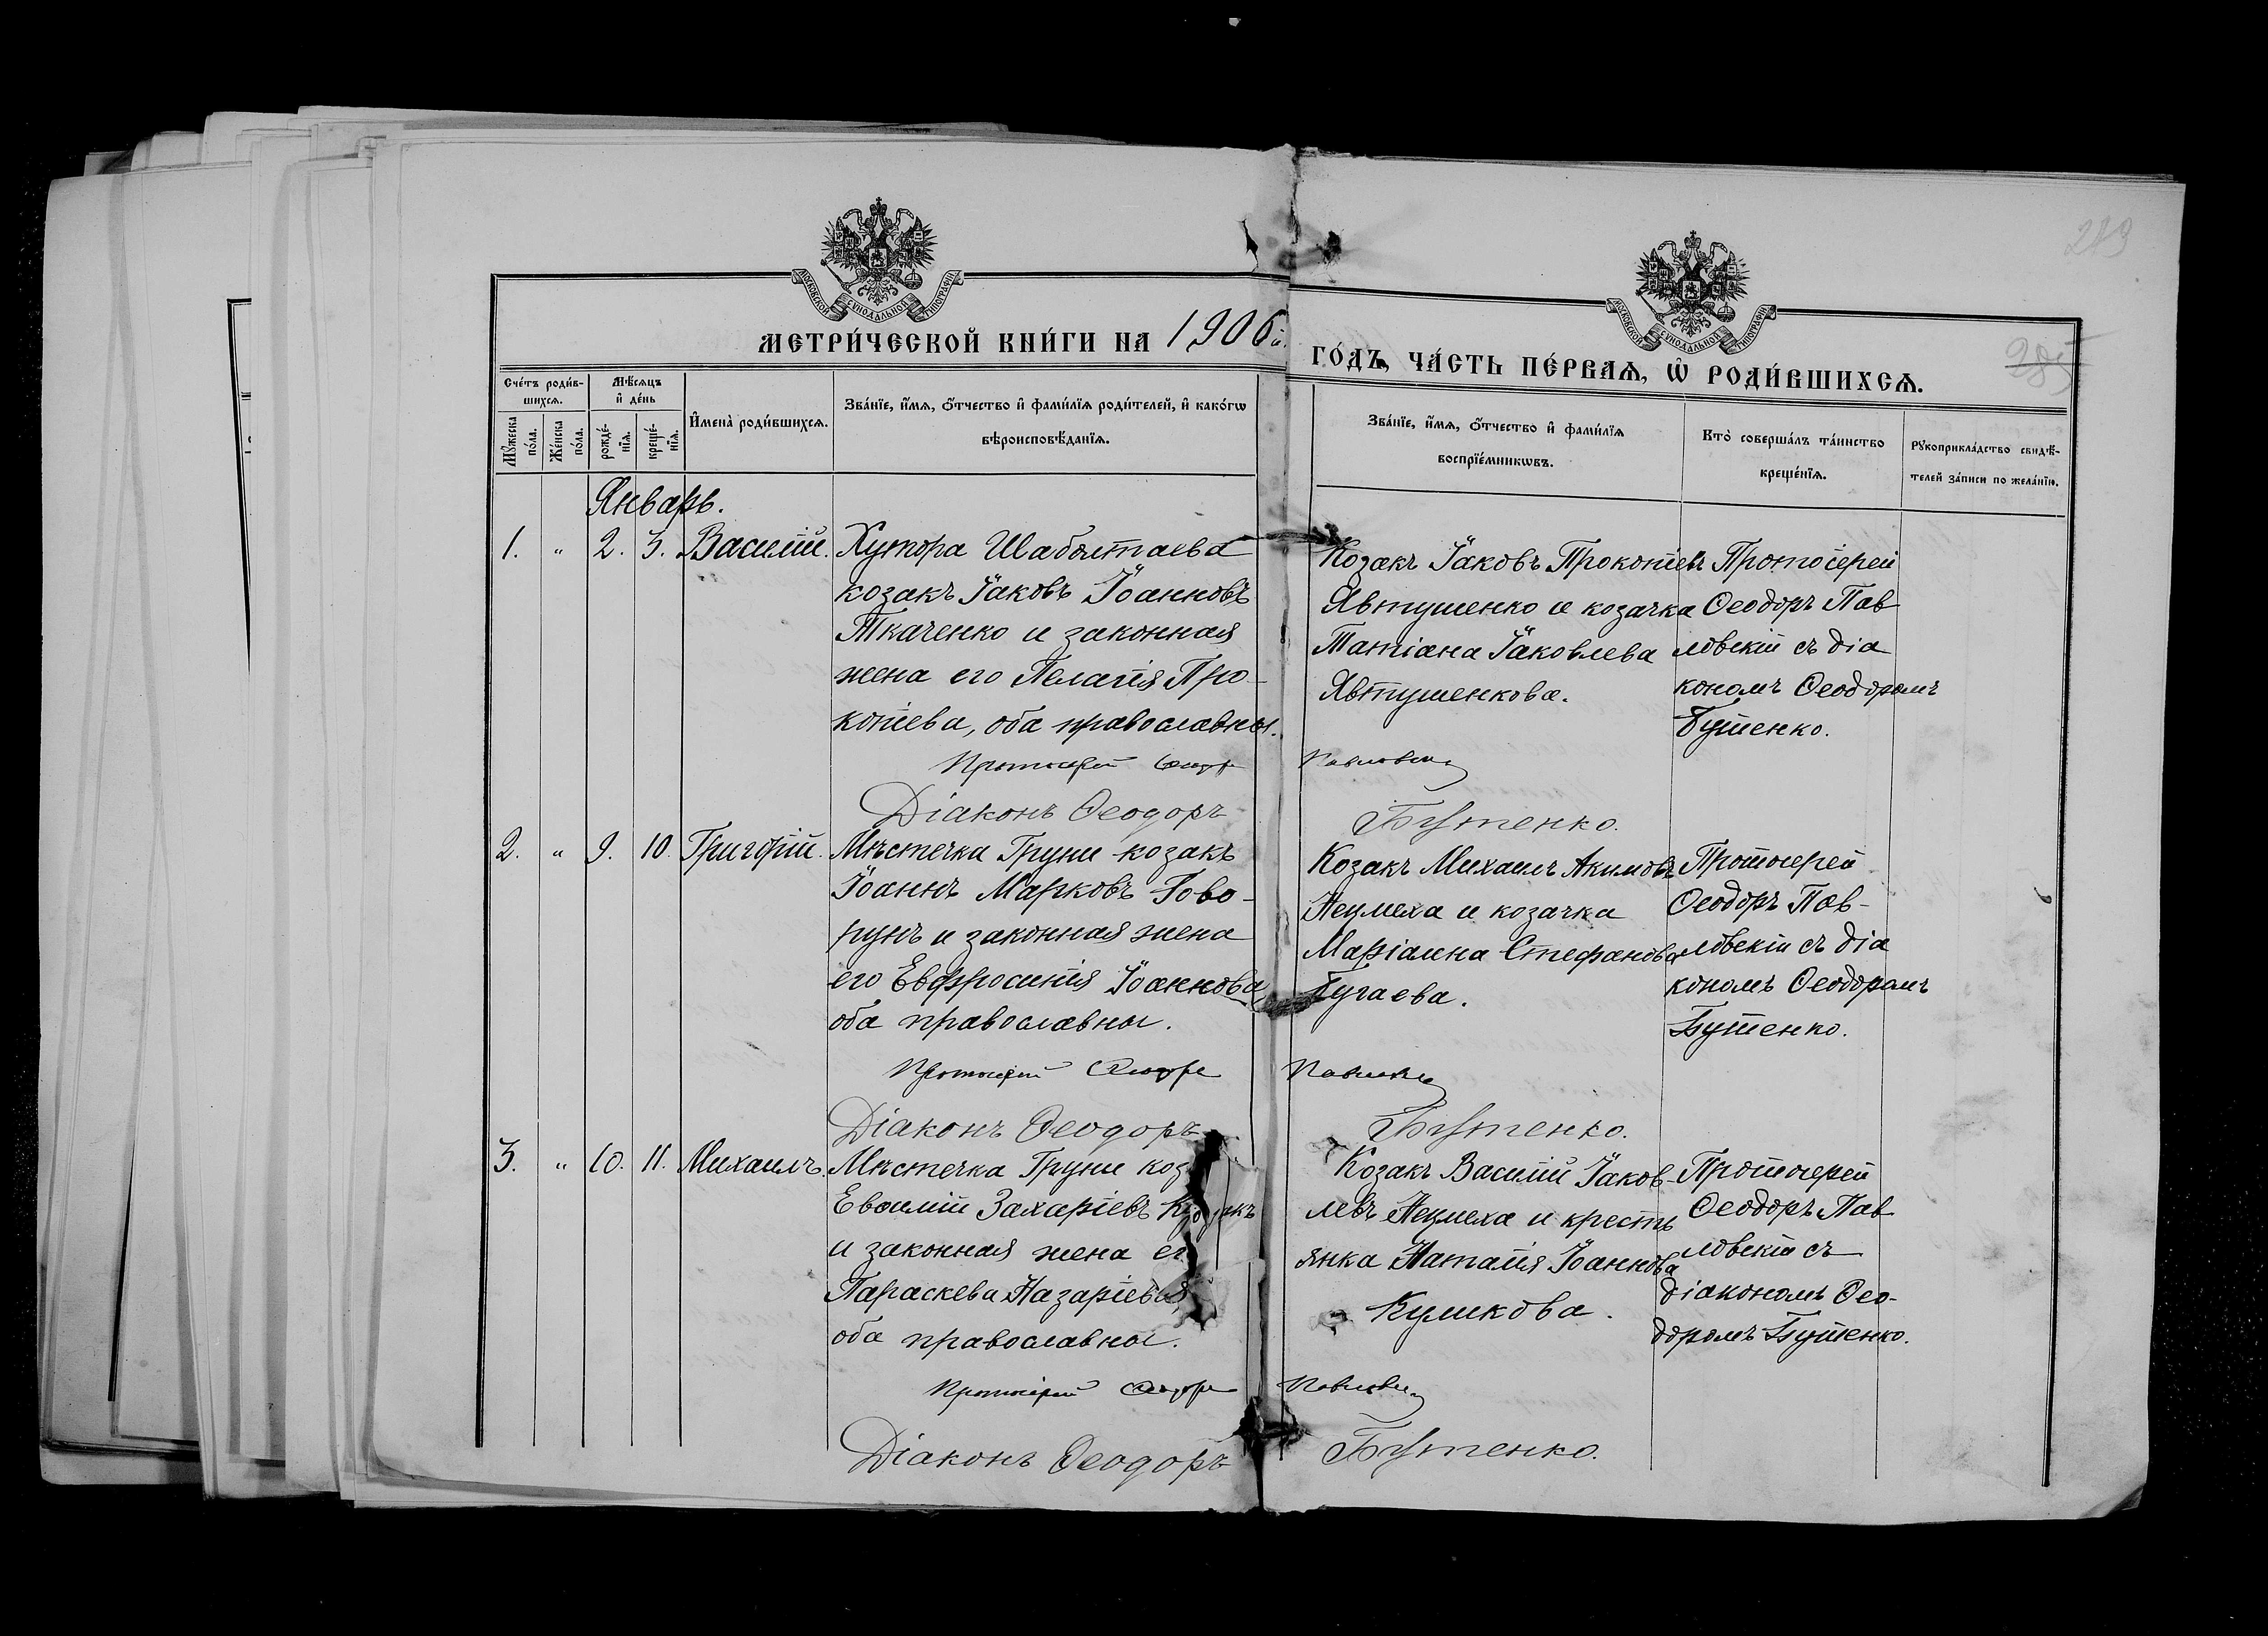 289
285
МОСКОВСКОЙ СѴНОДАЛЬНОЙ ТИПОГРАФІИ
МОСКОВСКОЙ СѴНОДАЛЬНОЙ ТИПОГРАФІИ
МЕТРИ́ЧЕСКОЙ КНИ́ГИ НА 1906й.
ГО́ДЪ, ЧА́СТЬ ПЕ́РВАѦ, Ѡ҆ РОДИ́ВШИХСѦ.
Сче́тъ роди́в-
шихсѧ.
Мꙋ́жеска
по́ла.
Же́нска
по́ла.
Мѣ́сѧцъ
и҆ де́нь
рожде́-
нїѧ.
креще́-
нїѧ.
И҆мена̀ роди́вшихсѧ.
Зва́нїе, и҆́мѧ, ѻ҆́тчество и҆ фами́лїѧ роди́телей, и҆ како́гѡ
вѣроисповѣ́данїѧ.
Зва́нїе, и҆́мѧ, ѻ҆́тчество и҆ фами́лїѧ
воспрїе́мникѡвъ.
Кто̀ соверша́лъ та́инство
креще́нїѧ.
Рꙋкоприкла́дство свидѣ́-
телей за́писи по жела́нїю.
Январь.
1. „ 2. 3. Василій.
Хутора Шаболтаева
козакъ Іаковъ Іоанновъ
Ткаченко и законная
жена его Пелагія Про-
копіева, оба православны.
Козакъ Іаковъ Прокопіевъ
Явтушенко и козачка
Татіана Іаковлева
Явтушенкова.
Протоіерей
Ѳеодоръ Пав
ловскій съ діа
кономъ Ѳеодоромъ
Бутенко.
Протоіерей Ѳеодоръ Павловскій
Діаконъ Ѳеодоръ Бутенко.
2. „ 9. 10. Григорій.
Мѣстечка Груни козакъ
Іоаннъ Марковъ Гово-
рунъ и законная жена
его Евфросинія Іоаннова
оба православны.
Козакъ Михаилъ Акимовъ
Неумеха и козачка
Маріамна Стефанова
Бугаева.
Протоіерей
Ѳеодоръ Пав-
ловскій съ діа
кономъ Ѳеодоромъ
Бутенко.
Протоіерей Ѳеодоръ Павловскій
Діаконъ Ѳеодоръ Бутенко.
3. „ 10. 11. Михаилъ.
Мѣстечка Груни коз
Евѳимій Захаріевъ
и законная жена ег
Параскева Назаріева,
оба православны.
Козакъ Василій Іаков-
левъ Неумеха и кресть
янка Наталія Іоаннова
Куликова.
Протоіерей
Ѳеодоръ Пав
ловскій съ
діакономъ Ѳео-
доромъ Бутенко.
Протоіерей Ѳеодоръ Павловскій
Діаконъ Ѳеодоръ Бутенко.